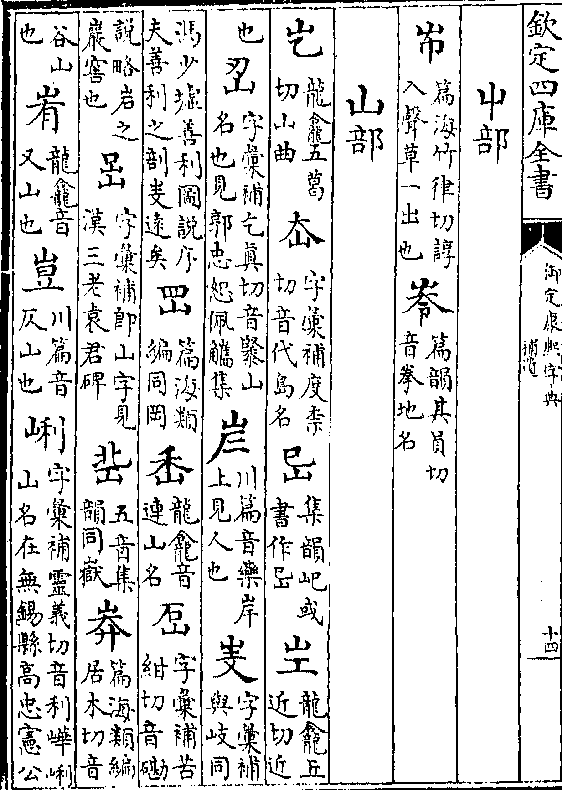 欽定四庫全書
御定康熙字典
補遺
十四
屮部
篇海竹律切諄入聲草一出也
篇韻其員切音拳地名
山部
龍龕五葛切山曲
字彙補度柰切音代島名
岊 集韻屺或書作岊
龍龕丘近切近也
字彙補乞眞切音緊山名也見郭忠恕佩觿集
川篇音藥岸上見人也
字彙補與岐同
馮少墟善利圖說序夫善利之剖岐遠矣
篇海類編同岡
龍龕音連山名
字彙補苦紺切音磡
說略岩之巖窖也
字彙補卽山字見漢三老袁君碑
五音集韻同嶽
篇海類編居木切音谷山也
龍龕音又山也
川篇音仄山也
峢 字彙補靈義切音利嶂峢山名在無錫縣高忠憲公